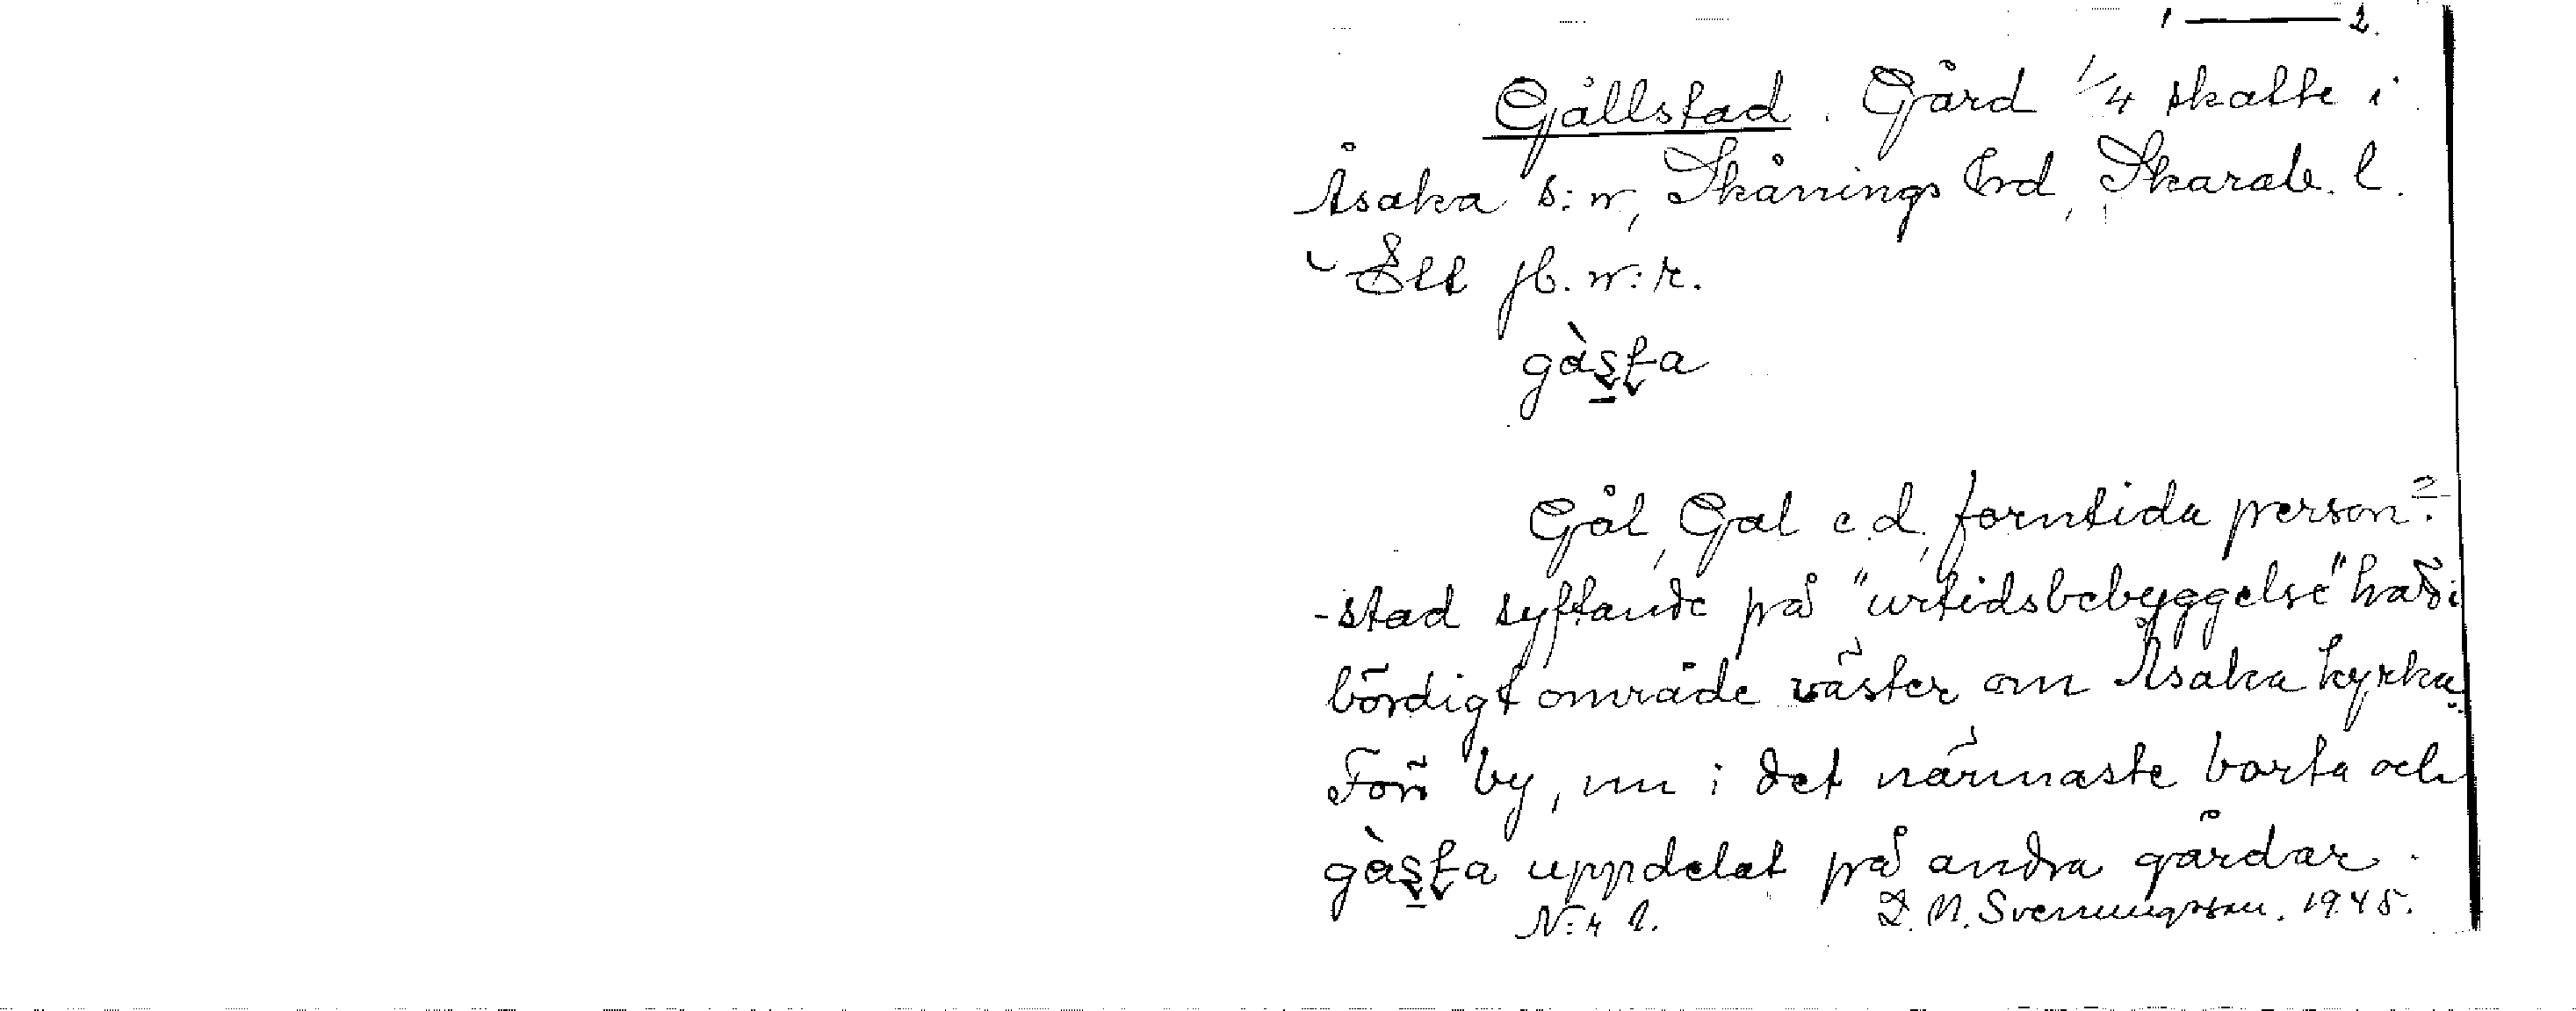 1 — 2.
Gållstad. Gård 1/4 skatte i
Åsaka s:n, Skånings hrd, Skarab. l.
Ett jb. n:r.
gàsta
Gål, Gal e.d. forntida person?
-stad syftande på "urtidsbebyggelse" här i
bördigt område väster om Åsaka kyrka.
Förr by, nu i det närmaste borta och
gàsta uppdelat på andra gårdar.
N:r 1. D. N. Svenningsson. 1945.